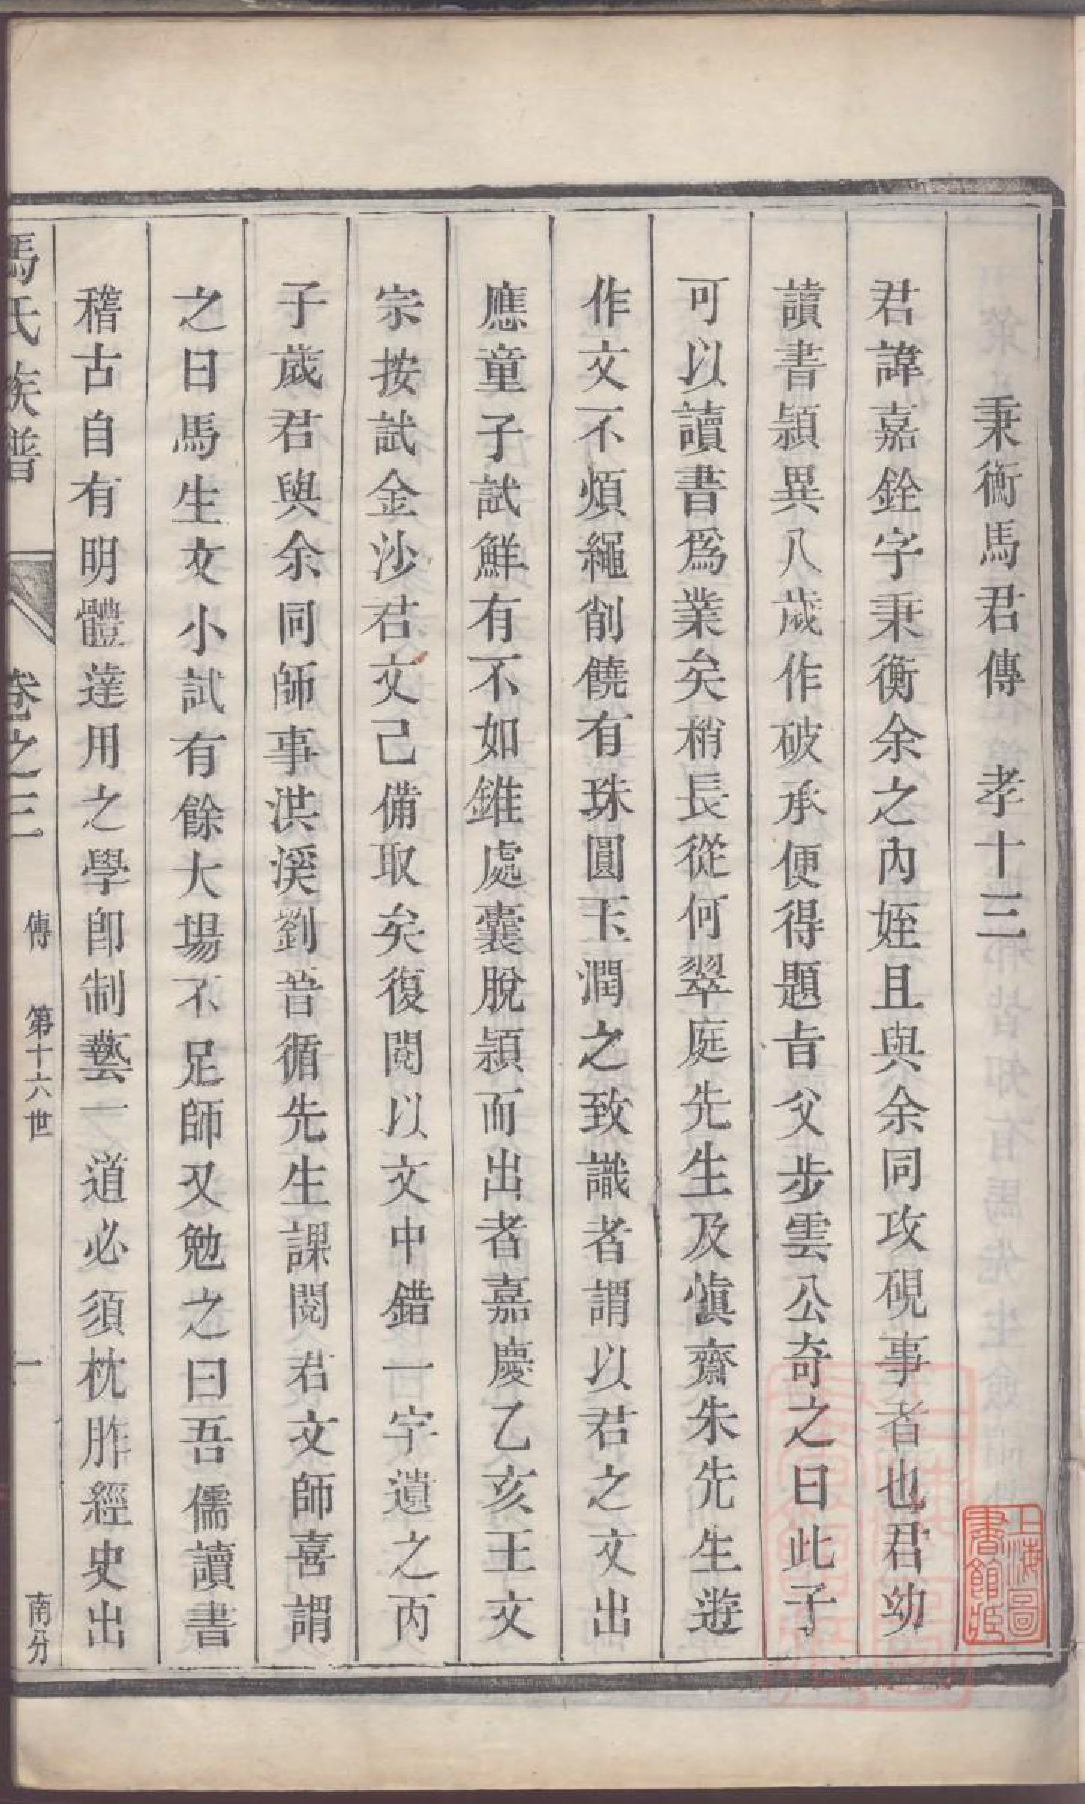 秉衡馬君傳 孝十三
君諱嘉銓字秉衡余之內姪且與余同攻硯事者也君幼
讀書頴異八歲作破承便得題旨父步雲公奇之曰此子
可以讀書爲業矣稍長從何翠庭先生及愼齋朱先生遊
作文不煩繩削饒有珠圓玉潤之致識者謂以君之文出
應童子試鮮有不如錐處囊脫頴而出者嘉慶乙亥王文
宗按試金沙君文己備取矣復閱以文中錯一字遺之丙
子歲君與余同師事洪溪劉音循先生課閱君文師喜謂
之曰馬生文小試有餘大場不足師又勉之曰吾儒讀書
稽古自有明體達用之學卽制藝一道必須枕胙經史出
馬氏族譜 卷之三 傳 第十六世 一 南分
上海圖書館藏